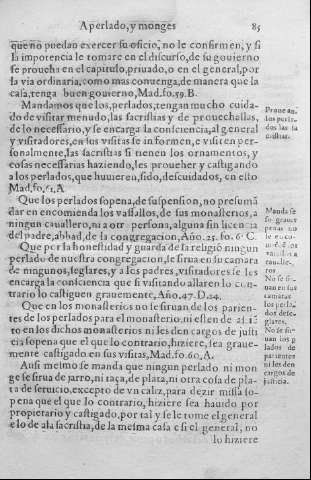 A perlado, y monges 85
que no puedan exercer su oficio, no le confirmen, y si
la imporencia le tomare en el discurso, de su gouierno
se prouea en el capitulo, priuado, o en el general, por
la via ordinaria, como mas conuenga, de manera que la
casa, tenga buen gouerno, Mad. fo. 59. B.
Mandamos que los, perlados, tengan mucho cuida-
do de visitar menudo, las sacristias y de prouechallas,
de lo necessario, y se encarga la consciencia, al general
y visitadores, en sus visitas se informen, e visiten per-
sonalmente, las sacristias si tienen los ornamentos, y
cosas necessarias haziendo, les proueher y castigando
a los perlados, que huuieren, sido, descuidados, en esto
Mad, fo, 61, A.
Que los perlados sopena, de suspension, no presumā
dar en encomienda los vassallos, de sus monasterios, a
ningun cauallero, ni a otr persona, alguna sin licencia
del padre, abbad, de la congregacion, Año. 25. fo. 6. C.
Que por la honestidad y guarda de la religiō ningun
perlado de nuestra congregacion, se sirua en su camara
de ningunos, seglares, y a los padres, visitadores se les
encarga la consciencia que si visitando allaren lo con-
trario lo castiguen grauemente, Año, 47. D. 24.
Que en los monasterios no se siruan, de los parien-
tes de los perlados para el monasterio, ni esten de assie
to en los dichos monasterios ni les den cargos de justi
cia sopena que el que lo contrario, hiziere, sea graue-
mente castigado en sus visitas, Mad. fo. 60, A.
Ausi mesmo se manda que ningun perlado ni mon
ge se sirua de jarro, ni taça, de plata, ni otra cosa de pla-
ta de seruicio, excepto de vn caliz, para dezir missa so-
pena que el que lo contrario, hiziere sea hauido por
propietario y castigado, por tal y se le tome el general
e lo de ala sacristia, de la mesma casa e si el general, no
lo hiziere
los perla-
dos las sa
cristias.
Manda se
no
vasallos a
caualle-
ros
No se sir-
uan en sus
camaras
los perla-
dos
glares.
No se sir-
uan los p
lados de
parientes
ni les den
cargos de
justicia.